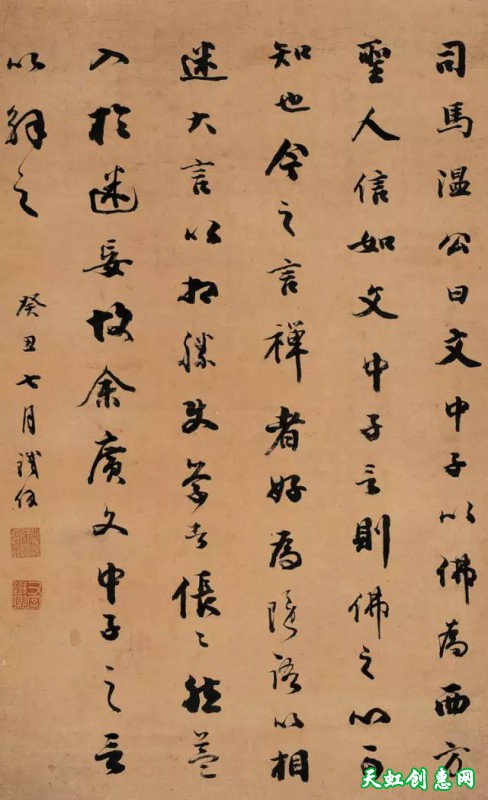 司馬温公曰文中子以佛為西方
聖人信如文中子言則佛之心可
知也今之言禪者好為隱語以相
迷大言以相勝使學者倀〻然益
入於迷妄故余廣文中子之言
以解之
癸丑七月
天虹创意网